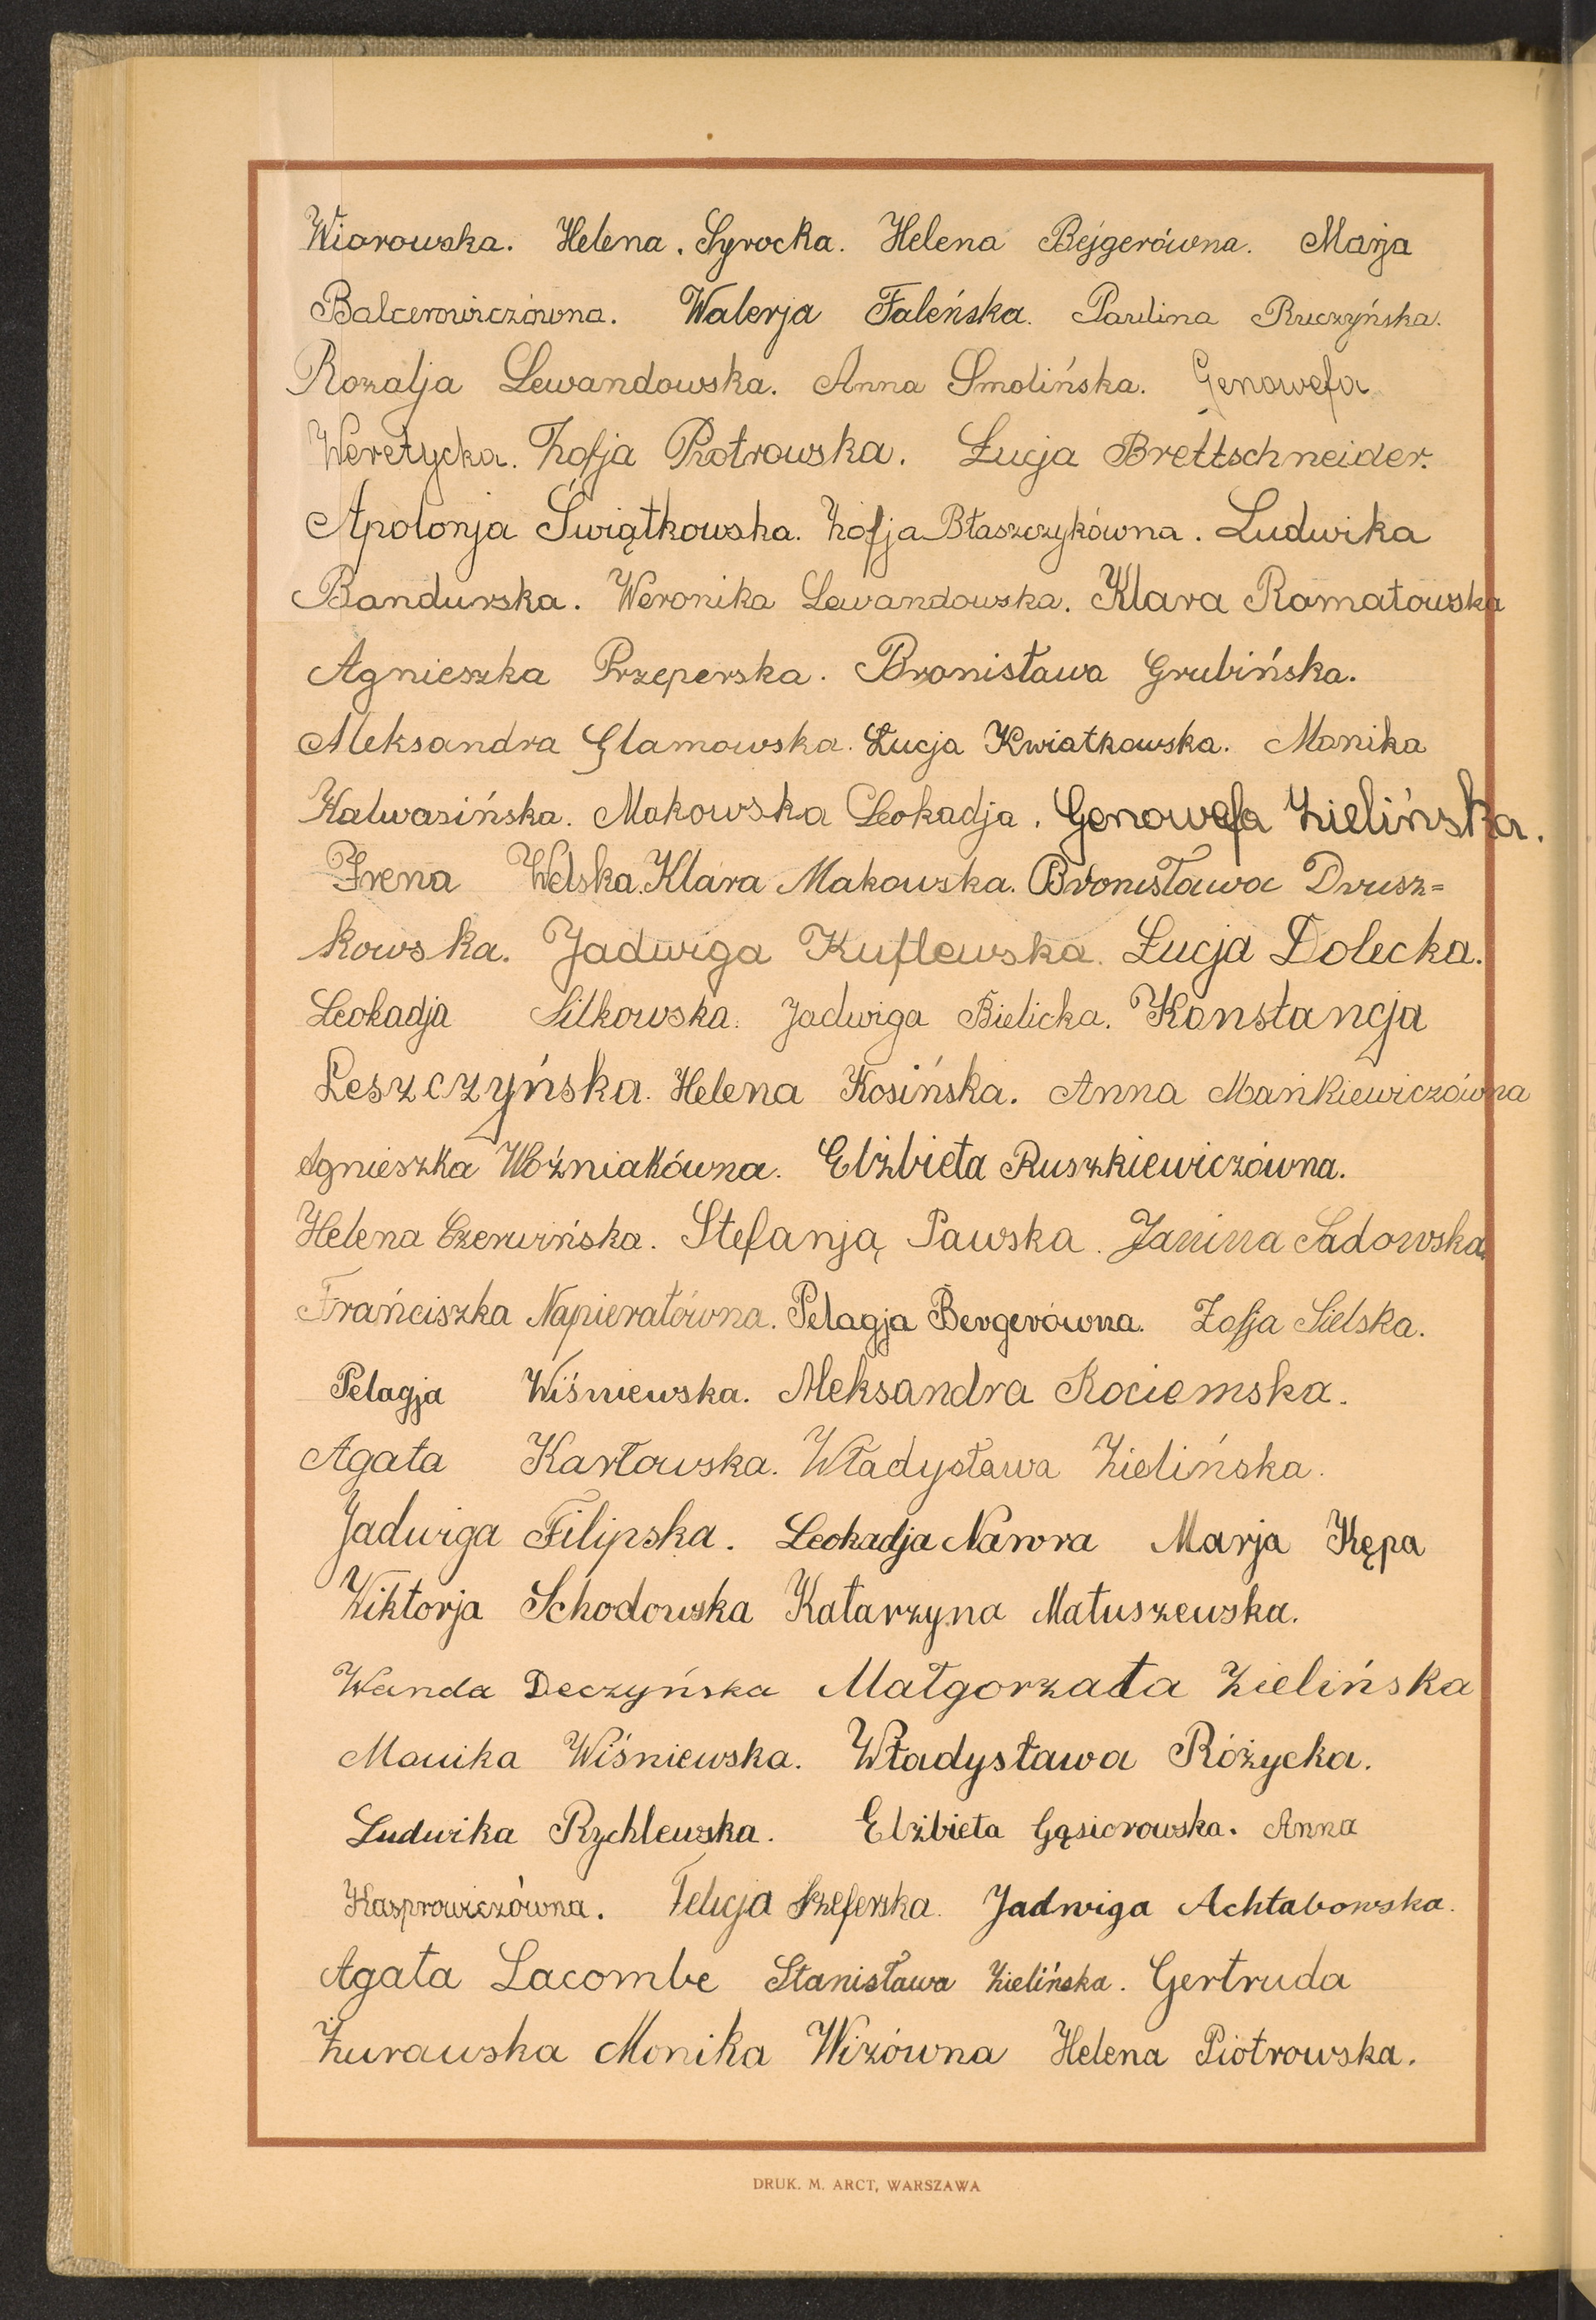 Wiorowska. Helena. Syrocka. Helena Bejgerówna. Marja
Balcerowiczówna. Walerja Faleńska. Paulina Ruczyńska.
Rozalja Lewandowska. Anna Smolińska. Genowefa
Weretycka. Zofja Piotrowska. Łucja Brettschneider.
Apolonja Świątkowska. Zofja Błaszczykówna. Ludwika
Bandurska. Weronika Lewandowska. Klara Romatowska
Agnieszka Przeperska. Bronisława Grubińska.
Aleksandra Glamowska. Łucja Kwiatkowska. Monika
Kalwasińska. Makowska Leokadja. Genowefa Zielińska.
Irena Welska. Klara Makowska. Bronisława Drusz=
kowska. Jadwiga Kuflewska. Łucja Dolecka.
Leokadja Silkowska. Jadwiga Bielicka. Konstancja
Leszczyńska. Helena Kosińska. Anna Mańkiewiczówna
Agnieszka Woźniakówna. Elżbieta Ruszkiewiczówna.
Helena Czerwińska. Stefanja Pawska. Janina Sadowska.
Frańciszka Napierałówna. Pelagja Bergerówna. Zofja Sielska.
Pelagja Wiśniewska. Aleksandra Rociemska.
Agata Karłowska. Władysława Zielińska.
Jadwiga Filipska. Leokadja Nawra Marja Kępa
Wiktorja Schodowska Katarzyna Matuszewska.
Wanda Deczyńska Małgorzata Zielińska
Monika Wiśniewska. Władysława Różycka.
Ludwika Rychlewska. Elżbieta Gąsiorowska. Anna
Kasprowiczówna. Felicja Jadwiga Achtabowska.
Agata Lacombe Stanisława Zielińska. Gertruda
Żurawska Monika Wizówna Helena Piotrowska.
DRUK. M. ARCT, WARSZAWA